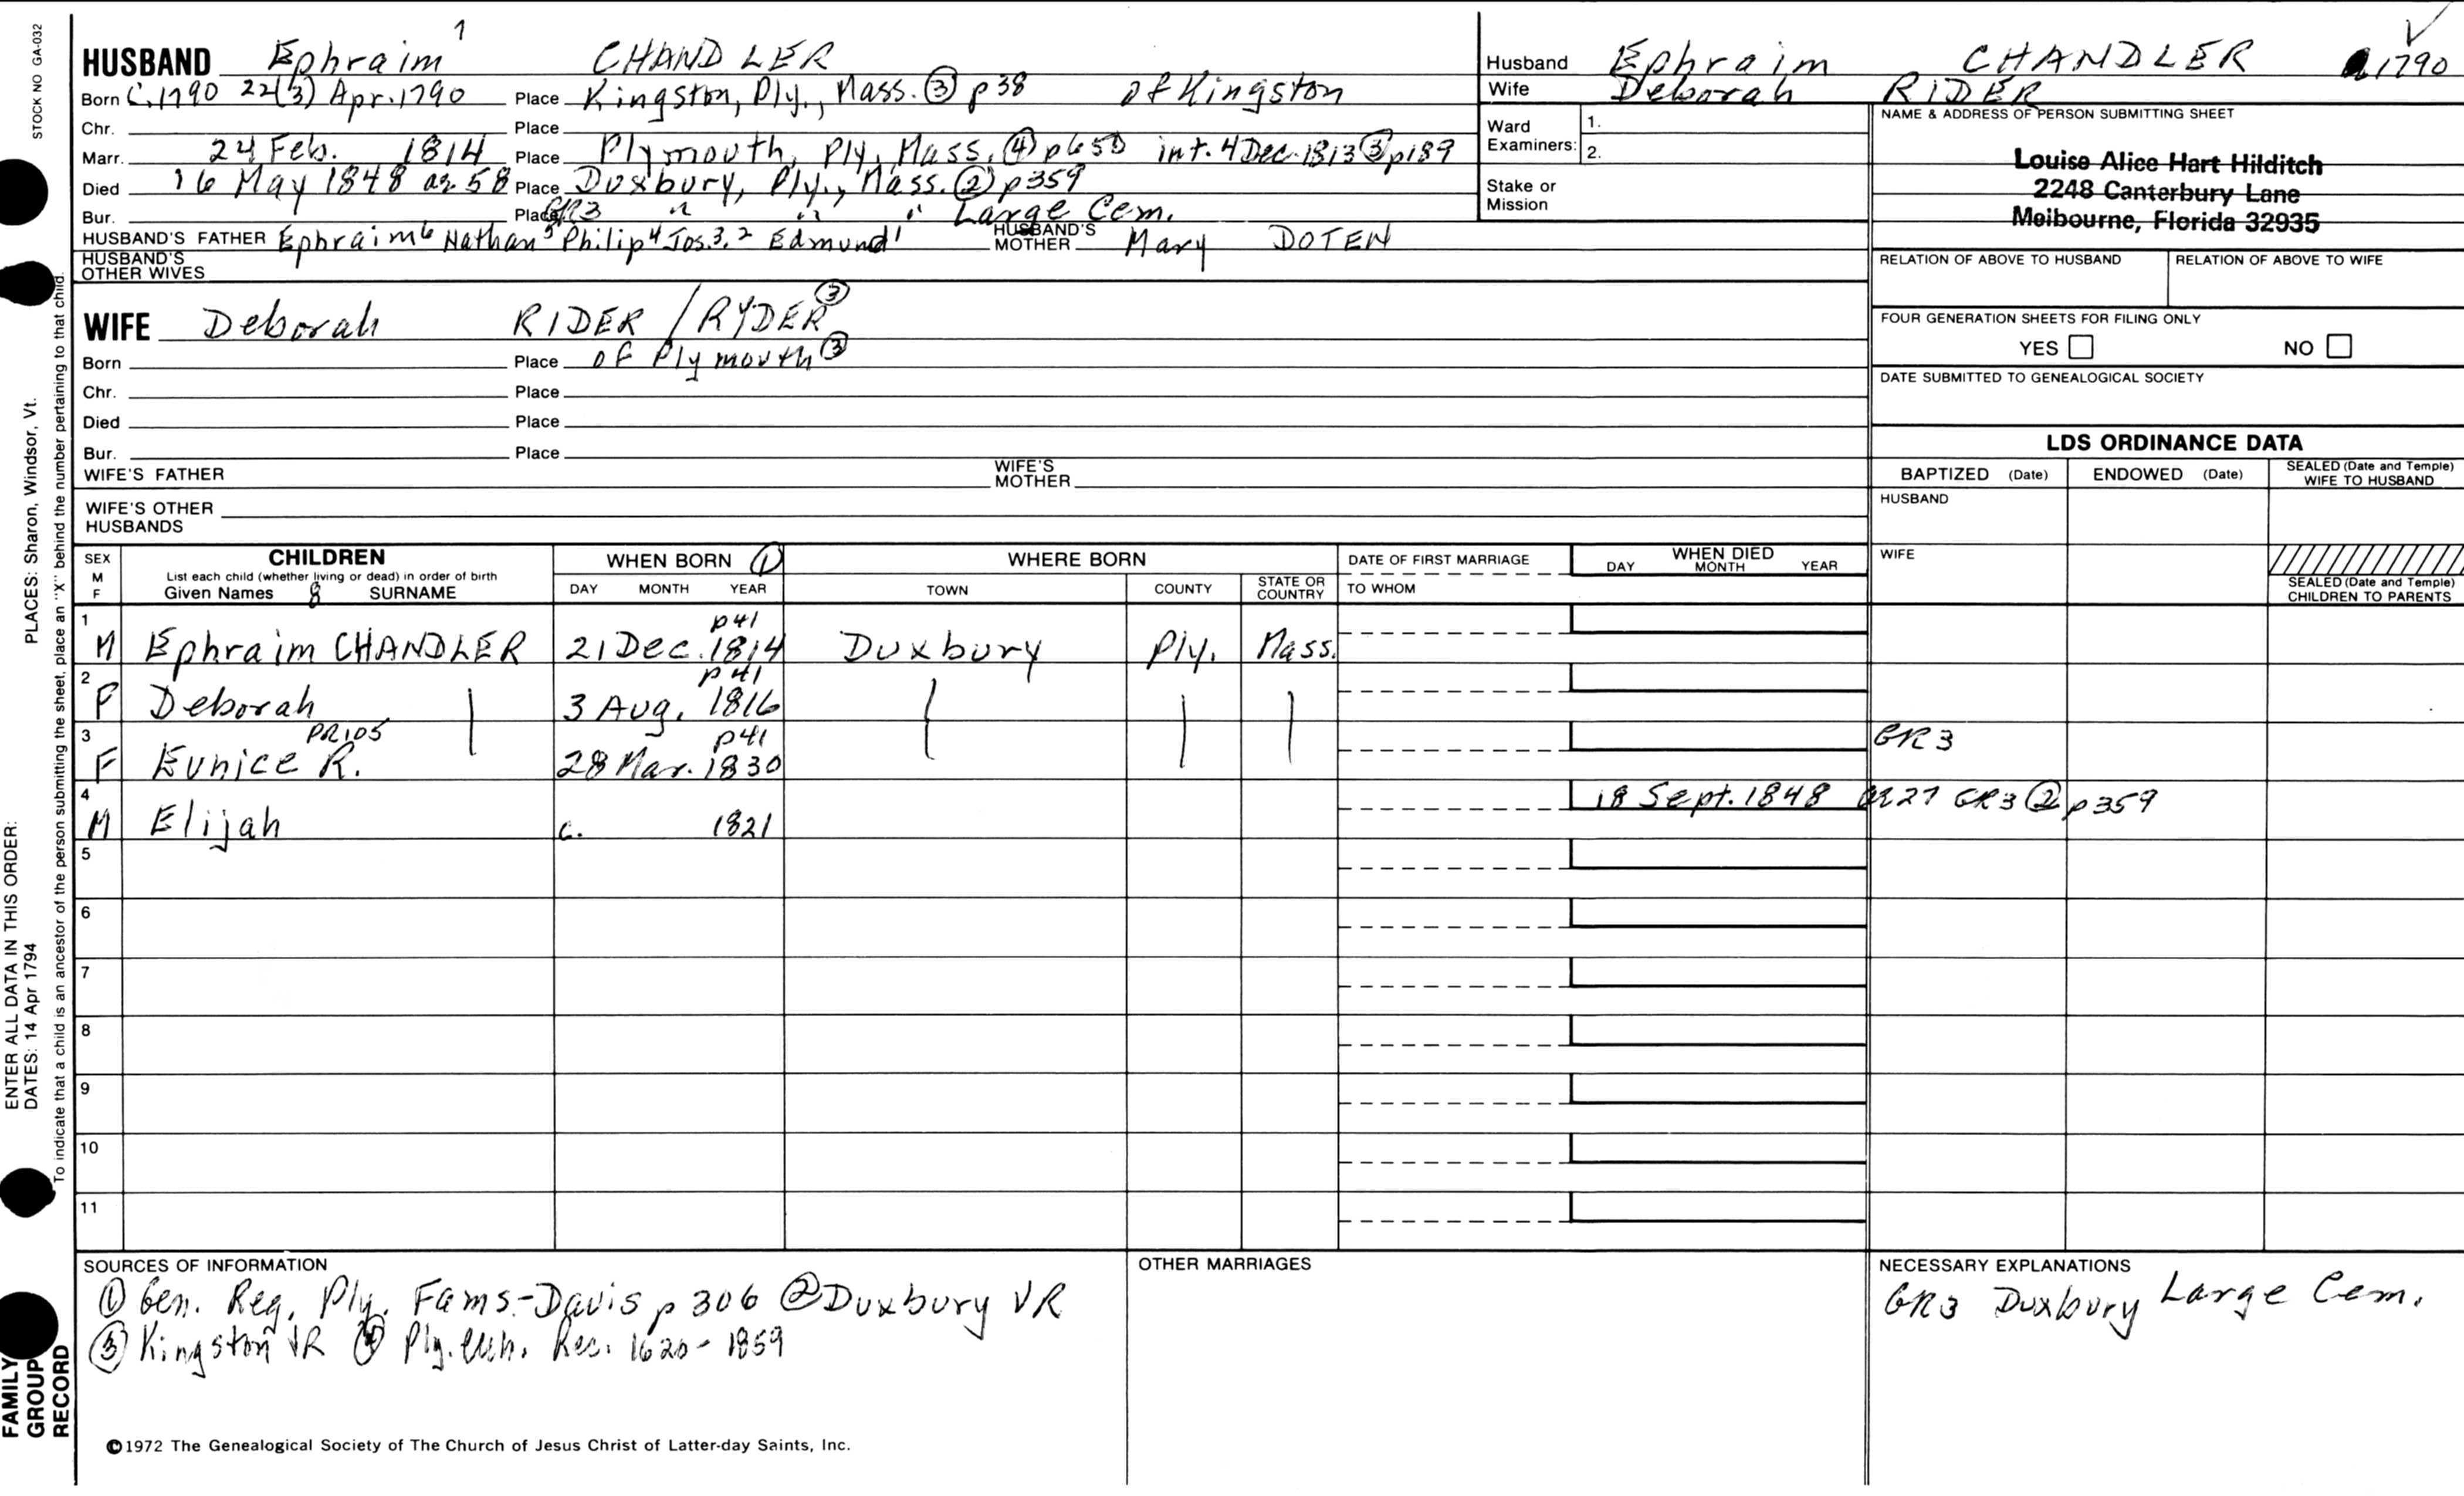 STOCK NO GA-032
HUSBAND Ephraim 7 CHANDLER
Born C.1790 22(3) Apr. 1790 Place Kingston, Ply., Mass. ③ p38 of Kingston
Chr. Place
Marr. 24 Feb. 1814 Place Plymouth, Ply, Mass. ④ p650 int. 4 Dec. 1813 ③ p189
Died 16 May 1848 ae 58 Place Duxbury, Ply., Mass. ② p359
Bur. Place GR3 " " " Large Cem.
HUSBAND'S FATHER Ephraim⁶ Nathan⁵ Philip⁴ Jos.3,2 Edmund¹ HUSBAND'S MOTHER Mary DOTEN
HUSBAND'S OTHER WIVES
WIFE Deborah RIDER / RYDER ③
Born Place of Plymouth ③
Chr. Place
Died Place
Bur. Place
WIFE'S FATHER WIFE'S MOTHER
WIFE'S OTHER HUSBANDS
Husband Ephraim CHANDLER 1790
Wife Deborah RIDER
Ward Examiners: 1. 2.
Stake or Mission
NAME & ADDRESS OF PERSON SUBMITTING SHEET
Louise Alice Hart Hilditch
2248 Canterbury Lane
Melbourne, Florida 32935
RELATION OF ABOVE TO HUSBAND RELATION OF ABOVE TO WIFE
FOUR GENERATION SHEETS FOR FILING ONLY
YES NO
DATE SUBMITTED TO GENEALOGICAL SOCIETY
LDS ORDINANCE DATA
BAPTIZED (Date) ENDOWED (Date) SEALED (Date and Temple) WIFE TO HUSBAND
HUSBAND
WIFE
SEALED (Date and Temple) CHILDREN TO PARENTS
SEX M F CHILDREN WHEN BORN ① WHERE BORN DATE OF FIRST MARRIAGE WHEN DIED
List each child (whether living or dead) in order of birth
Given Names 8 SURNAME DAY MONTH YEAR TOWN COUNTY STATE OR COUNTRY TO WHOM DAY MONTH YEAR
p41
1 M Ephraim CHANDLER 21 Dec. 1814 Duxbury Ply. Mass.
p41
2 F Deborah 3 Aug. 1816
PR105 p41
3 F Eunice R. 28 Mar. 1830 GR3
4 M Elijah c. 1821 18 Sept. 1848 ae 27 GR3 ② p359
5
6
7
8
9
10
11
SOURCES OF INFORMATION
① Gen. Reg. Ply. Fams.-Davis p 306 ② Duxbury VR
③ Kingston VR ④ Ply. Chh. Rec. 1620-1859
OTHER MARRIAGES
NECESSARY EXPLANATIONS
GR3 Duxbury Large Cem.
©1972 The Genealogical Society of The Church of Jesus Christ of Latter-day Saints, Inc.
ENTER ALL DATA IN THIS ORDER:
DATES: 14 Apr 1794 PLACES: Sharon, Windsor, Vt.
To indicate that a child is an ancestor of the person submitting the sheet, place an "X" behind the number pertaining to that child.
FAMILY GROUP RECORD